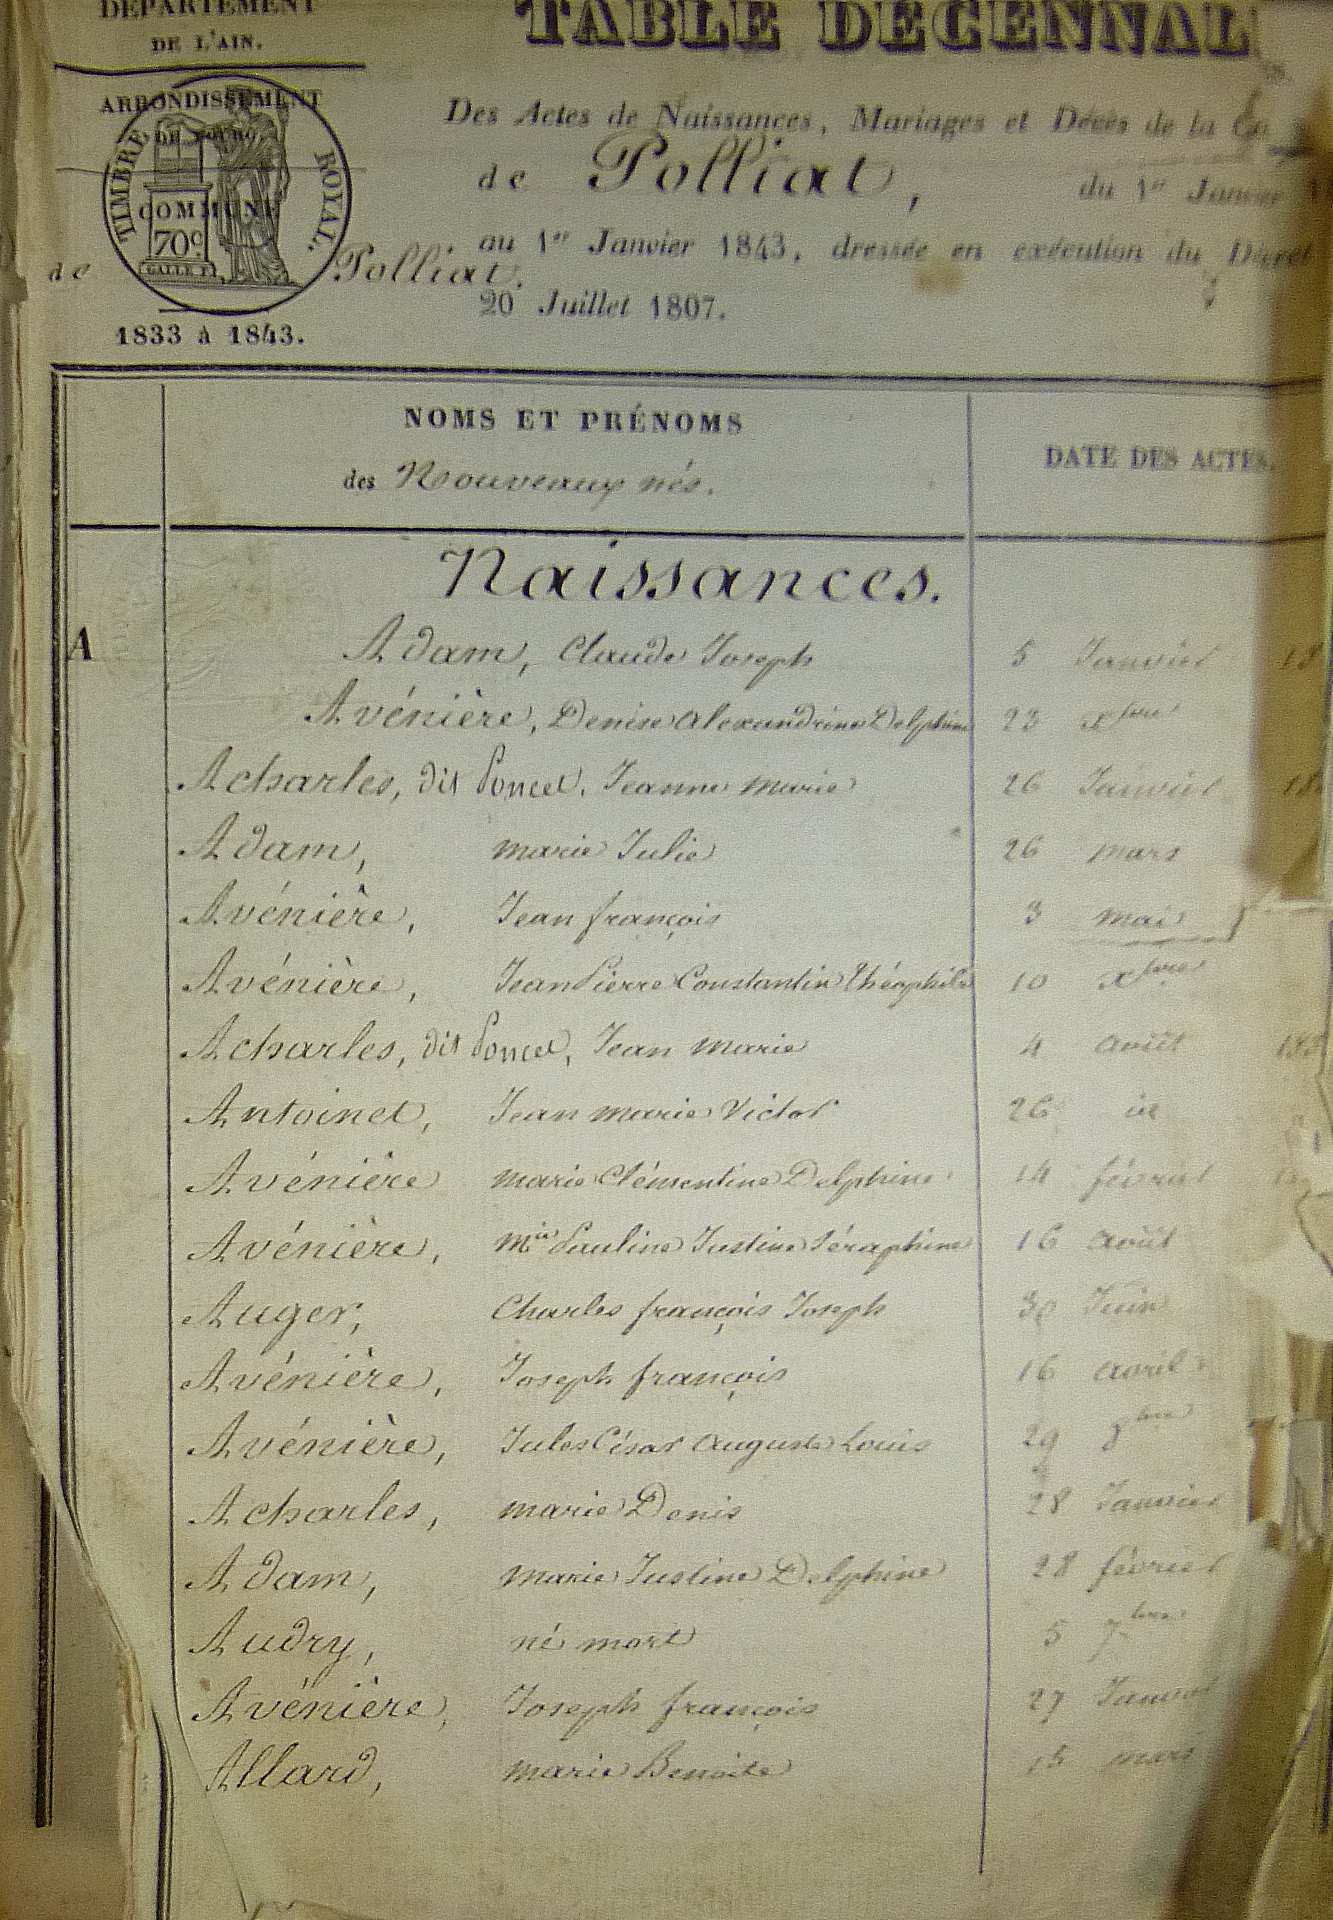 DÉPARTEMENT
DE L'AIN.
TABLE DÉCENNAL
ARRONDISSEMENT
TIMBRE ROYAL.
COMMUNE
70c
de Polliat.
1833 à 1843.
Des Actes de Naissances, Mariages et Décès de la
de Polliat, du 1er Janvier
au 1er Janvier 1843, dressée en exécution du Décret
20 Juillet 1807.
NOMS ET PRÉNOMS
des Nouveaux nés.
DATE DES ACTES.
Naissances.
A
Adam, Claude Joseph 5 Janvier 18
Avénière, Denise Alexandrine Delphine 23 Xbre
Acharles, dit Poncet, Jeanne Marie 26 Janvier 18
Adam, marie Julie 26 mars
Avénière, Jean françois 3 mai
Avénière, Jean Pierre Constantin Théophile 10 Xbre
Acharles, dit Poncet, Jean Marie 4 août 183
Antoinet, Jean marie Victor 26 id
Avénière marie Clémentine Delphine 14 février
Avénière, Mie Pauline Justine Séraphine 16 août
Auger, Charles françois Joseph 30 Juin
Avénière, Joseph françois 16 avril
Avénière, Jules César Auguste Louis 29 8bre
Acharles, marie Denis 28 Janvier
Adam, marie Justine Delphine 28 février
Audry, né mort 5 7bre
Avénière, Joseph françois 27 Janvier
Allard, marie Benoite 15 mars